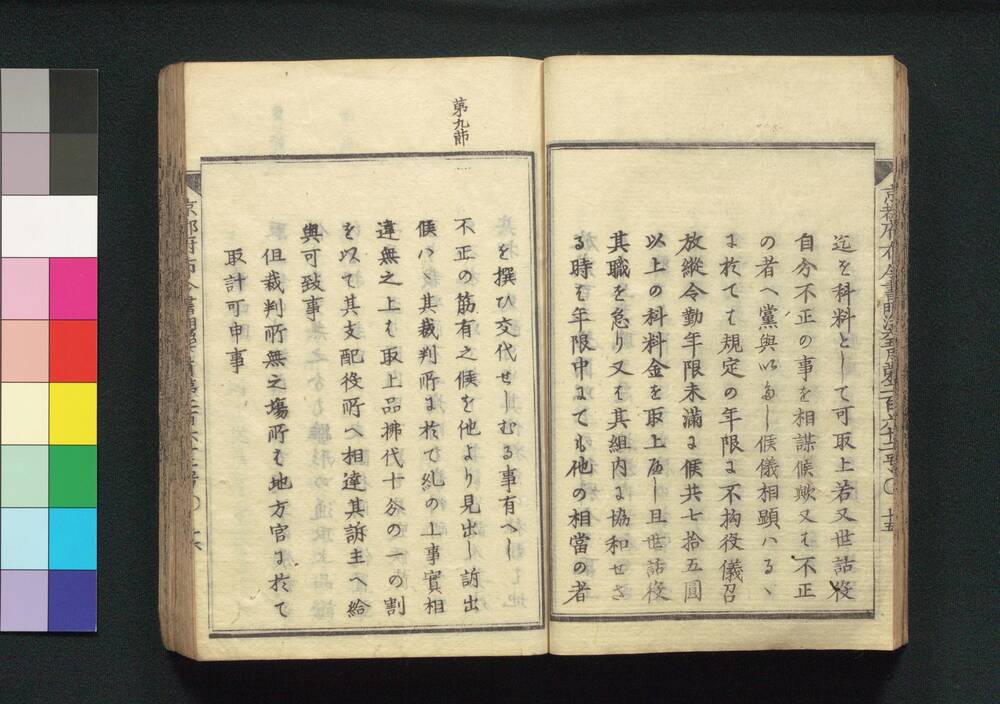 迄を科料として可取上若又世話役
自分不正の事を相謀候歟又は不正
の者へ黨與いたし候儀相顕ハるゝ
に於ては規定の年限に不拘役儀召
放縦令勤年限未満に候共七拾五圓
以上の科料金を取上へし且世話役
其職を怠り又は其組内に協和せさ
る時は年限中にても他の相當の者
を撰ひ交代せしむる事有へし
第九節
不正の筋有之候を他より見出し訴出
候ハヽ其裁判所に於て糺の上事實相
違無之上は取上品拂代十分の一の割
を以て其支配役所へ相達其訴主へ給
與可致事
但裁判所無之場所は地方官に於て
取計可申事